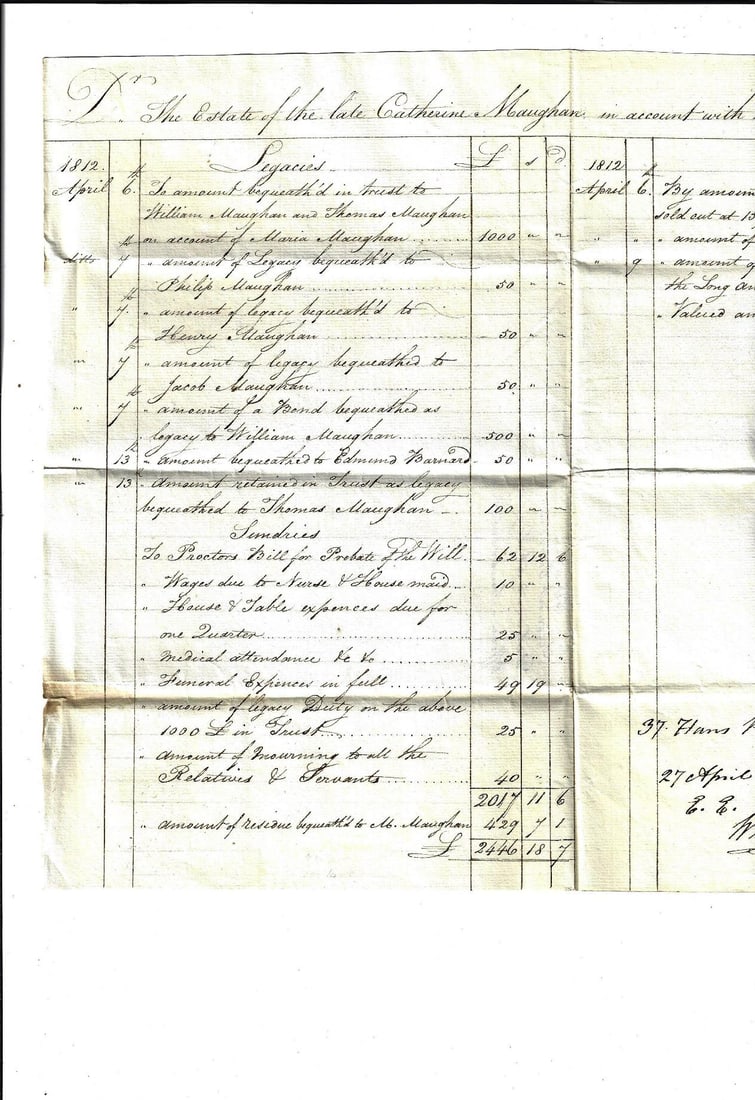 Dr. The Estate of the late Catherine Maughan in account with
1812. Legacies £ s d
April 6th To amount bequeath'd in trust to
William Maughan and Thomas Maughan
on account of Maria Maughan ........ 1000 " "
ditto 7th " amount of Legacy bequeath'd to
Philip Maughan ........ 50 " "
" 7th " amount of legacy bequeath'd to
Henry Maughan ........ 50 " "
" 7th " amount of legacy bequeathed to
Jacob Maughan ........ 50 " "
" 7th " amount of a Bond bequeathed as
legacy to William Maughan ........ 500 " "
" 13th " amount bequeathed to Edmund Barnard 50 " "
" 13th " Amount retained in Trust as legacy
bequeathed to Thomas Maughan 100 " "
Sundries
To Proctors Bill for Probate of the Will 62 12 6
" Wages due to Nurse & House maid 10 " "
" House & Table expences due for
one Quarter ........ 25 " "
" medical attendance &c &c ........ 5 " "
" Funeral Expences in full ........ 49 19 "
" amount of legacy Duty on the above
1000 £ in Trust ........ 25 " "
" amount of mourning to all the
Relatives & Servants ........ 40 " "
2017 11 6
" amount of residue bequeath'd to M. Maughan 429 7 1
£ 2446 18 7
1812
April 6th By amoun
sold out at
" " " amount of
" 9 " amount of
the Long An
" Valued am
37 Hans
27 April
E. E.